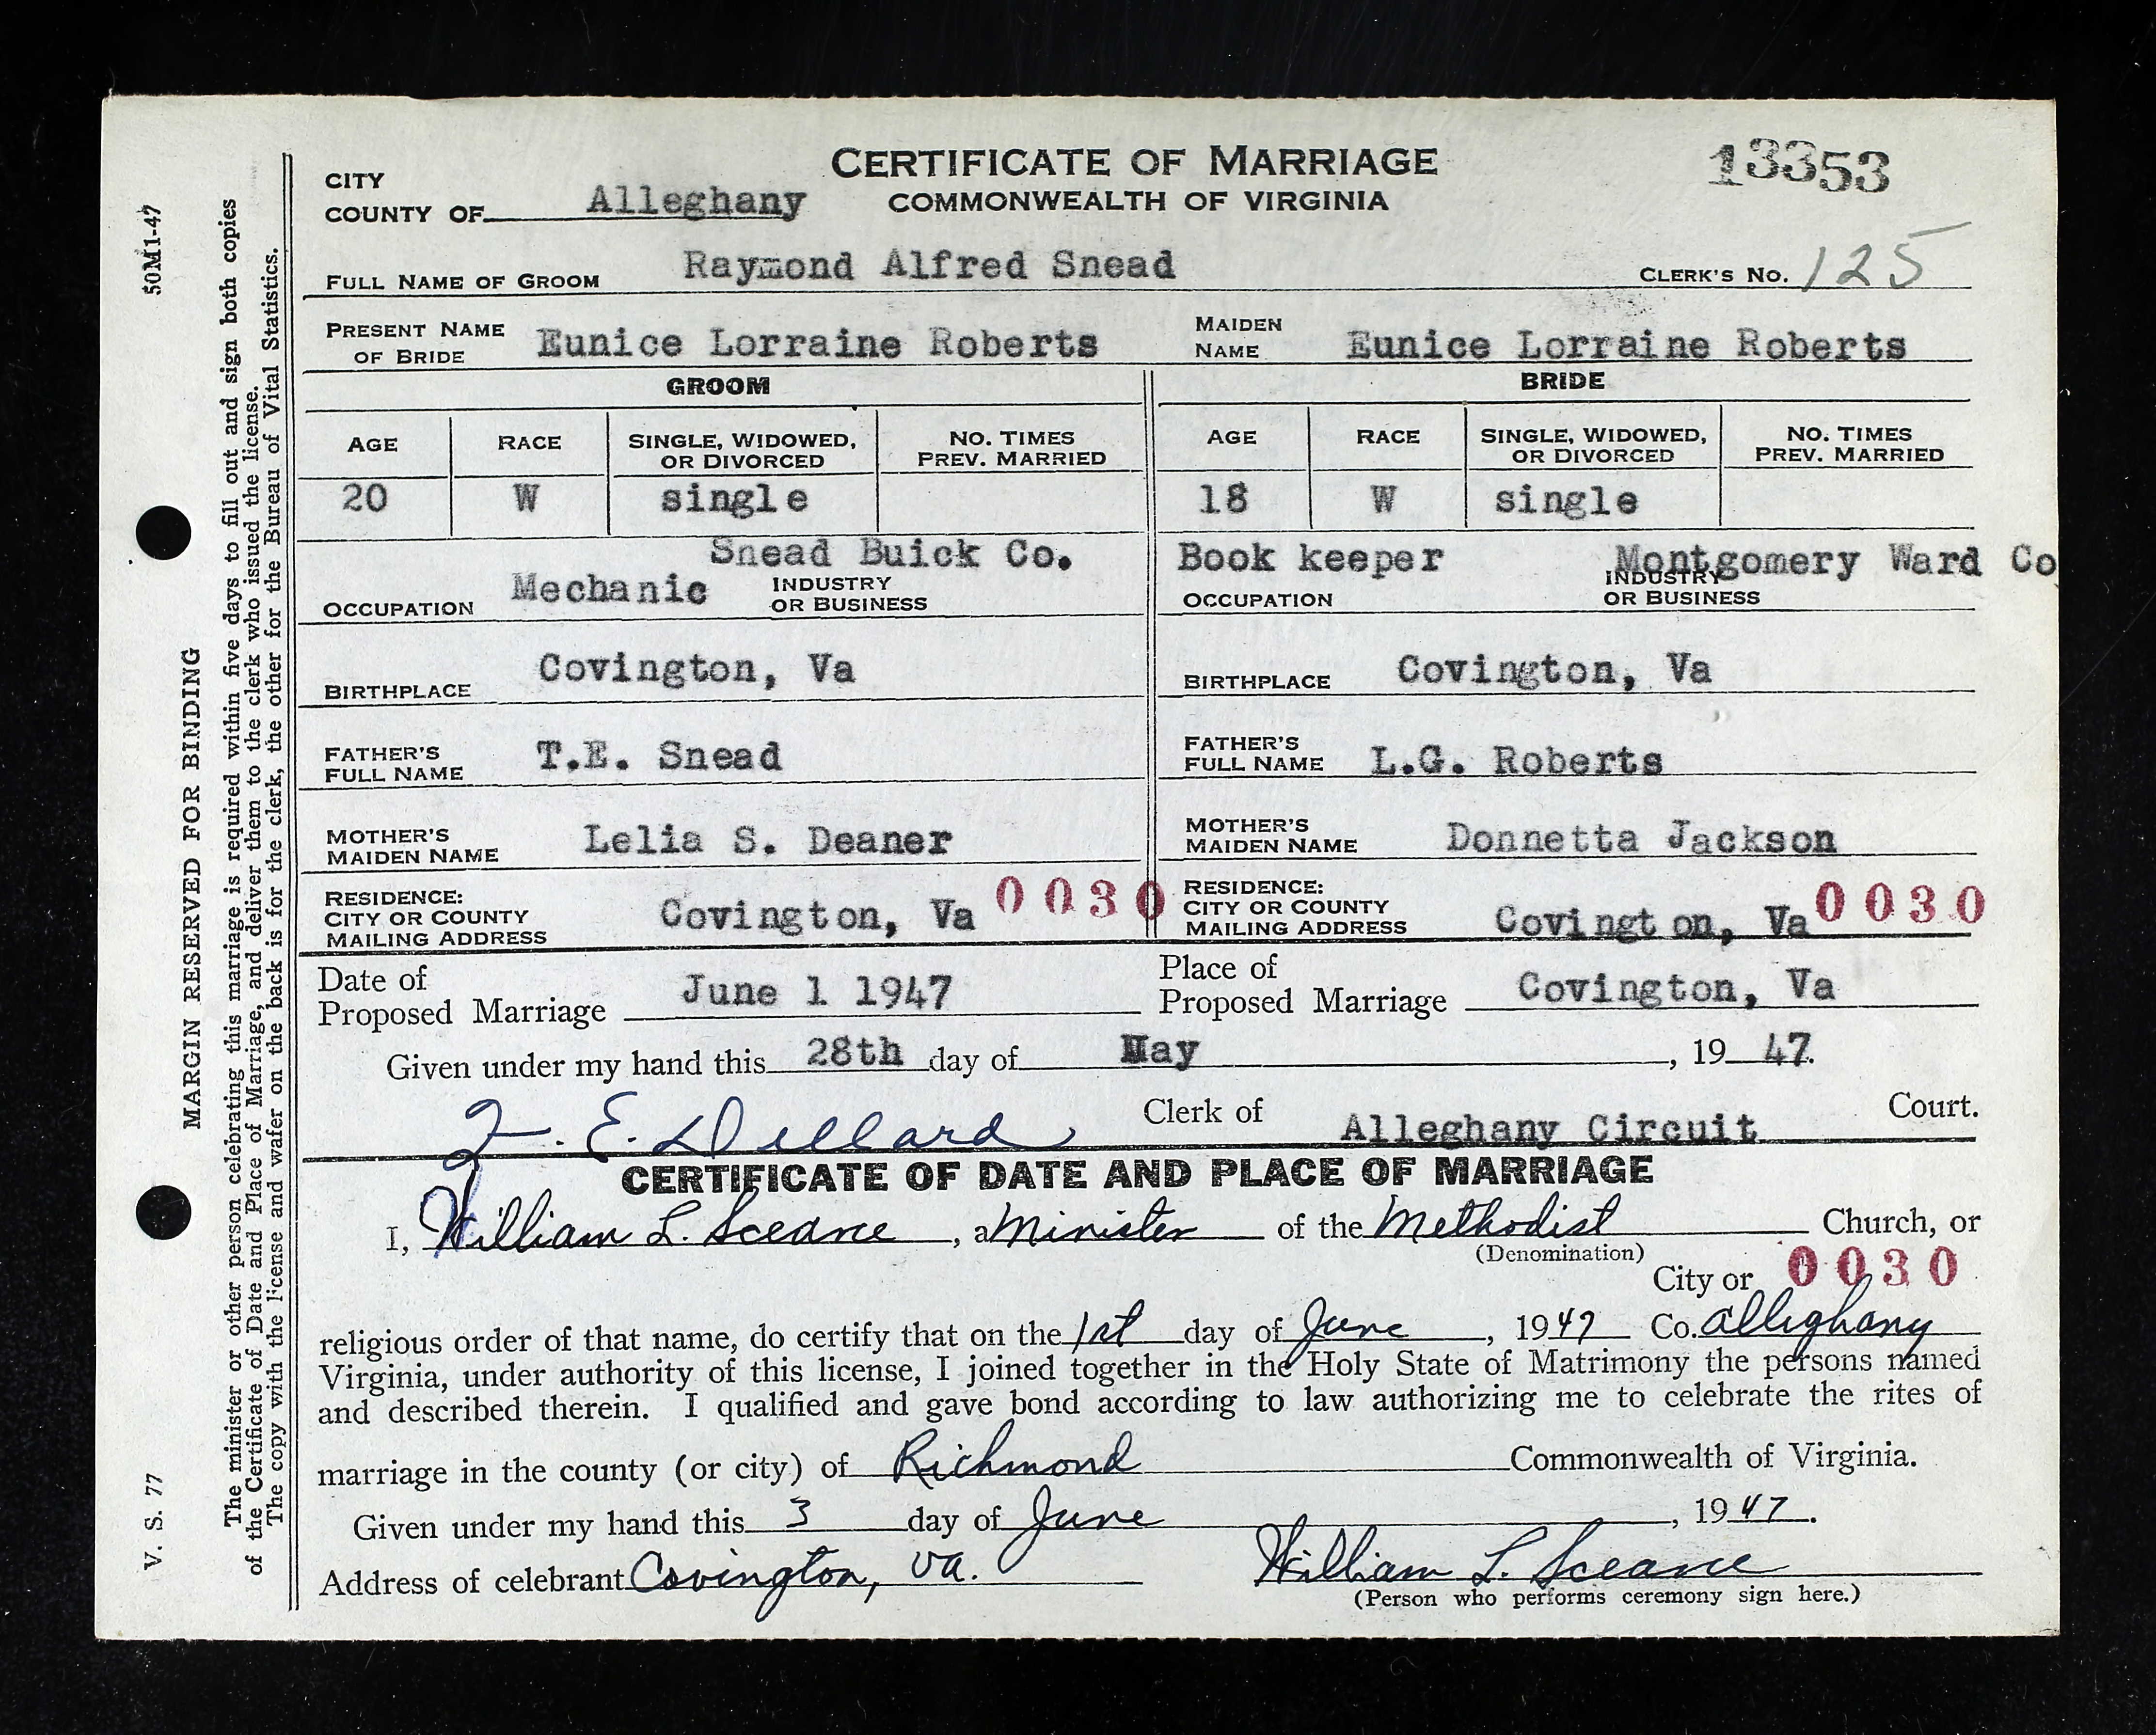 CERTIFICATE OF MARRIAGE
COMMONWEALTH OF VIRGINIA
13353
CITY
COUNTY OF Alleghany
FULL NAME OF GROOM Raymond Alfred Snead CLERK'S NO. 125
PRESENT NAME OF BRIDE Eunice Lorraine Roberts MAIDEN NAME Eunice Lorraine Roberts
GROOM BRIDE
AGE RACE SINGLE, WIDOWED, OR DIVORCED NO. TIMES PREV. MARRIED AGE RACE SINGLE, WIDOWED, OR DIVORCED NO. TIMES PREV. MARRIED
20 W single 18 W single
OCCUPATION Mechanic INDUSTRY OR BUSINESS Snead Buick Co. OCCUPATION Book keeper INDUSTRY OR BUSINESS Montgomery Ward Co
BIRTHPLACE Covington, Va BIRTHPLACE Covington, Va
FATHER'S FULL NAME T.E. Snead FATHER'S FULL NAME L.G. Roberts
MOTHER'S MAIDEN NAME Lelia S. Deaner MOTHER'S MAIDEN NAME Donnetta Jackson
RESIDENCE: CITY OR COUNTY MAILING ADDRESS Covington, Va 0030 RESIDENCE: CITY OR COUNTY MAILING ADDRESS Covingt on, Va 0030
Date of Proposed Marriage June 1 1947 Place of Proposed Marriage Covington, Va
Given under my hand this 28th day of May, 19 47.
E. Dillard Clerk of Alleghany Circuit Court.
CERTIFICATE OF DATE AND PLACE OF MARRIAGE
I, William L. Scearce, a Minister of the Methodist Church, or
(Denomination)
City or 0030
religious order of that name, do certify that on the 1st day of June, 1947 Co. Alleghany
Virginia, under authority of this license, I joined together in the Holy State of Matrimony the persons named
and described therein. I qualified and gave bond according to law authorizing me to celebrate the rites of
marriage in the county (or city) of Richmond Commonwealth of Virginia.
Given under my hand this 3 day of June, 1947.
Address of celebrant Covington, Va. William L. Scearce
(Person who performs ceremony sign here.)
50M1-47
V. S. 77
MARGIN RESERVED FOR BINDING
The minister or other person celebrating this marriage is required within five days to fill out and sign both copies
of the Certificate of Date and Place of Marriage, and deliver them to the clerk who issued the license.
The copy with the license and wafer on the back is for the clerk, the other for the Bureau of Vital Statistics.